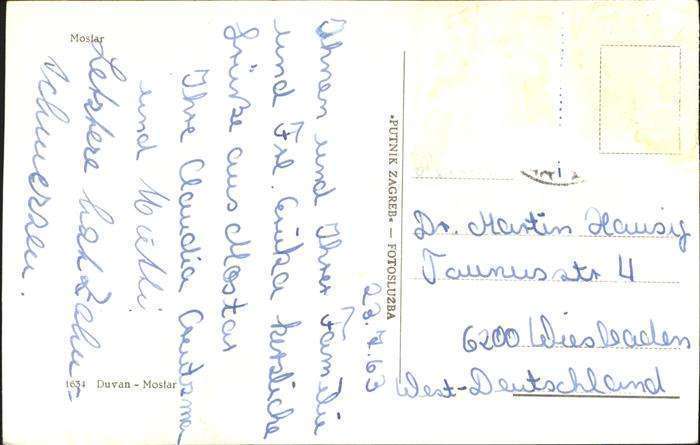 Mostar
23.7.63
Ihnen und Ihrer Familie
und Frl. Erika herzliche
Grüße aus Mostar
Ihre Claudia
und Mutti.
Letztere hat Zahn-
schmerzen.
1634 Duvan - Mostar
»PUTNIK ZAGREB« — FOTOSLUŽBA
Dr. Martin Hausig
Taunusstr 4
6200 Wiesbaden
West-Deutschland